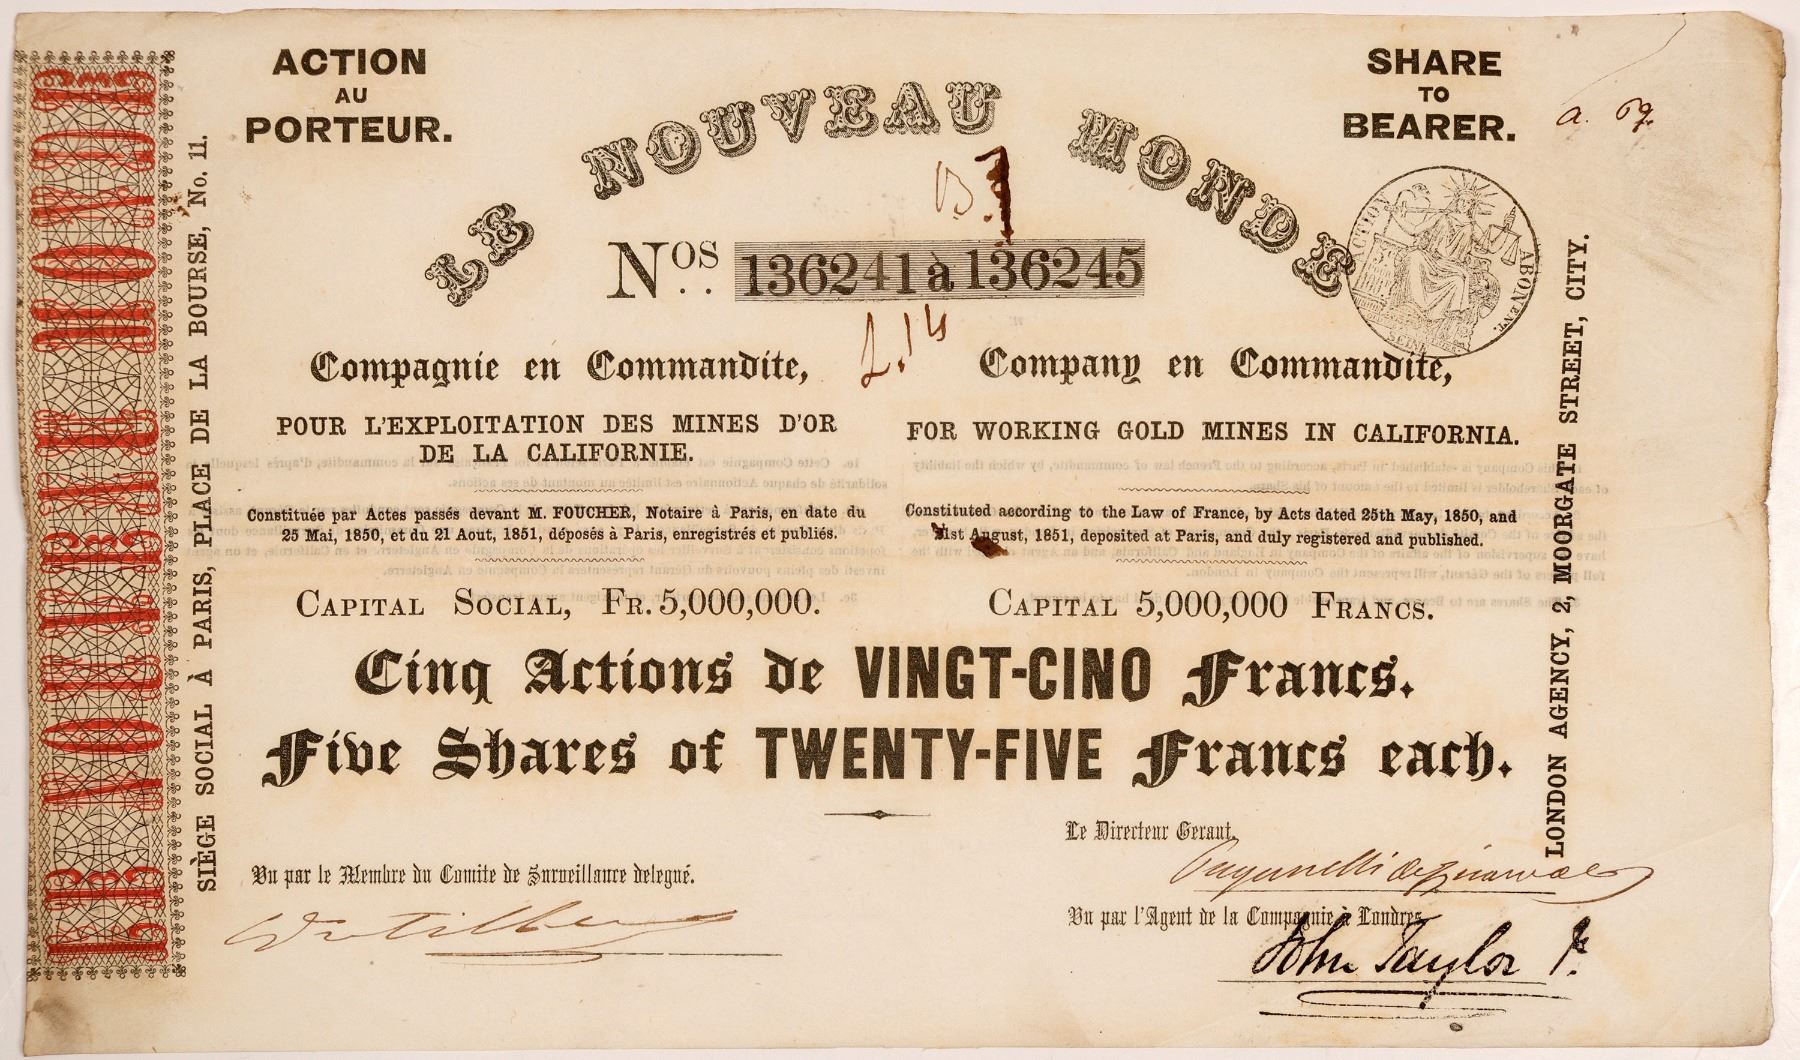 ACTION
AU
PORTEUR.
SHARE
TO
BEARER.
a. 69.
LE NOUVEAU MONDE
B.
Nos 136241 à 136245
ACTION
ABONENT.
SEINE
Compagnie en Commandite,
POUR L'EXPLOITATION DES MINES D'OR
DE LA CALIFORNIE.
Constituée par Actes passés devant M. FOUCHER, Notaire à Paris, en date du
25 Mai, 1850, et du 21 Aout, 1851, déposés à Paris, enregistrés et publiés.
CAPITAL SOCIAL, FR. 5,000,000.
Company en Commandite,
FOR WORKING GOLD MINES IN CALIFORNIA.
Constituted according to the Law of France, by Acts dated 25th May, 1850, and
21st August, 1851, deposited at Paris, and duly registered and published.
CAPITAL 5,000,000 FRANCS.
Cinq Actions de VINGT-CINQ Francs.
Five Shares of TWENTY-FIVE Francs each.
Le Directeur Gerant,
Vu par le Membre du Comite de Surveillance delegué.
Vu par l'Agent de la Compagnie à Londres
John Taylor Jr.
SIÈGE SOCIAL À PARIS, PLACE DE LA BOURSE, No. 11.
LONDON AGENCY, 2, MOORGATE STREET, CITY.
LE NOUVEAU MONDE